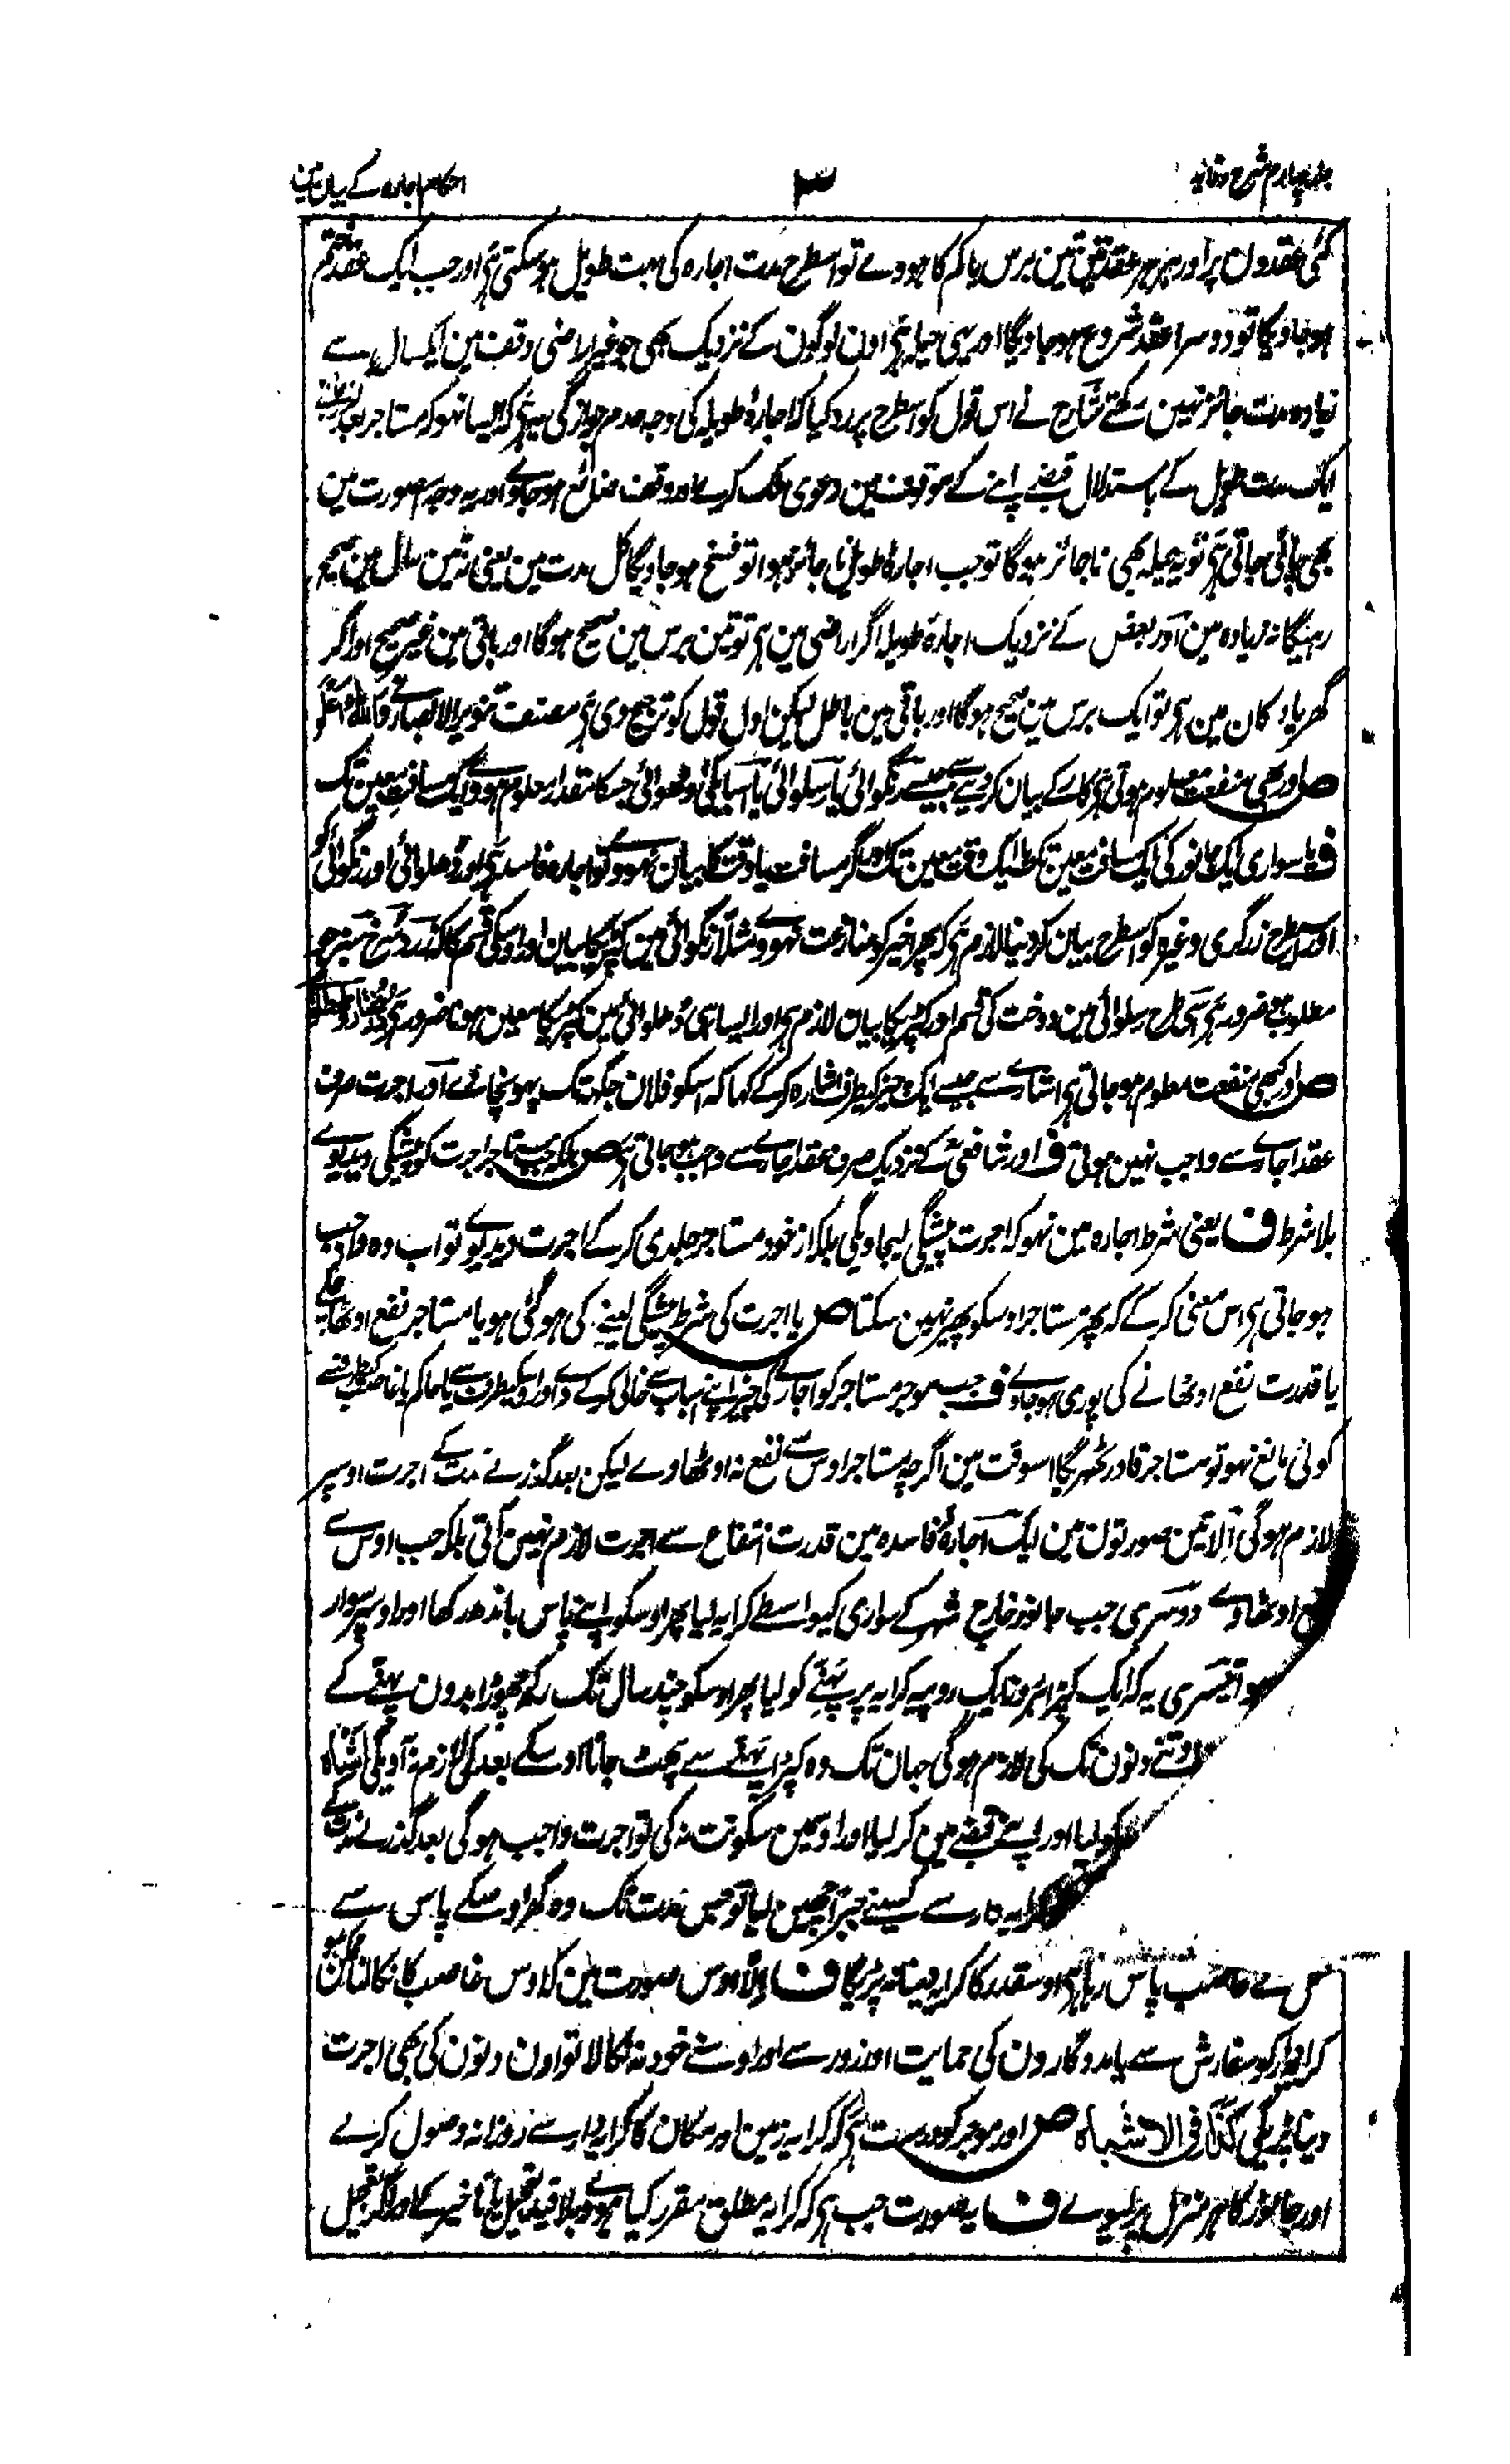 جلد چہارم شرح وقایہ
۳
احکام اجارہ کے بیان مین
کئی عقدون پر اور ہر ہر عقد تین تین برس یا کم کا ہووے تو اسطرح مدت اجارہ کی بہت طویل ہو سکتی ہی اور جب ایک عقد ختم
ہو جاویگا تو دوسرا عقد شروع ہو جاویگا اور یہی حیلہ ہی اون لوگون کے نزدیک بھی جو غیر اراضی وقف مین ایک سال سے
زیادہ مدت جائز نہین رکھتے شارح نے اس قول کو اسطرح پر رد کیا کہ اجارۂ طویلہ کی وجہ عدم جواز کی یہ ہی کہ ایسا نہو کہ مستاجر بعد
ایک مدت طویل کے باستدلال قبضے اپنے کے موقوف مین دعوی ملک کرے اور وقف ضائع ہو جاوے اور یہ وجہ اس صورت مین
بھی پائی جاتی ہی تو یہ حیلہ بھی ناجائز ہوگا تو جب اجارۂ طویل ناجائز ہوا تو فسخ ہو جاویگا کل مدت مین یعنی نہ تین سال مین صحیح
رہیگا نہ زیادہ مین اور بعض کے نزدیک اجارۂ طویلہ اگر اراضی مین ہی تو تین برس مین صحیح ہوگا اور باقی مین غیر صحیح اور اگر
گھر یا دکان مین ہی تو ایک برس مین صحیح ہوگا اور باقی مین باطل لیکن اول قول کو ترجیح دی ہی مصنف تنویر الابصار نے واللہ اعلم
ص اور کبھی منفعت معلوم ہوتی ہی کار کے بیان کر دینے سے جیسے رنگوائی یا سلوائی یا آسیا کی ڈھوائی جسکا مقدار معلوم ہووے ایک مسافت معین تک
ف یا سواری ایک جانور کی ایک مسافت معین تک یا ایک وقت معین تک اور اگر مسافت یا وقت کا بیان نہووے تو اجارہ فاسد ہی اور دھلوائی اور رنگوائی کو
اور اسیطرح زرگری وغیرہ کو اسطرح بیان کر دینا لازم ہی کہ پھر اخیر کو منازعت نہووے مثلاً رنگوائی مین کپڑیکا بیان اور اوسکی قسم کا کہ زرد سرخ سبز جو
مطلوب ہو ضرور ہی اسی طرح سلوائی مین دوخت کی قسم اور کپڑیکا بیان لازم ہی اور ایسا ہی دھلوائی مین کپڑیکا معین ہونا ضرور ہی
ص اور کبھی منفعت معلوم ہو جاتی ہی اشارے سے جیسے ایک چیز کیطرف اشارہ کر کے کہا کہ اسکو فلان جگہ تک پہونچا دے اور اجرت صرف
عقد اجارے سے واجب نہین ہوتی ف اور شافعی کے نزدیک صرف عقد اجارے سے واجب ہو جاتی ہی ص بلکہ جب مستاجر اجرت کو پیشگی دیدیوے
بلا شرط ف یعنی شرط اجارہ مین نہو کہ اجرت پیشگی لیجاویگی بلکہ از خود مستاجر جلدی کر کے اجرت دیدیوے تو اب وہ واجب
ہو جاتی ہی اس معنی کر کے کہ پھر مستاجر اوسکو پھیر نہین سکتا ص یا اجرت کی شرط پیشگی لینے کی ہو گئی ہو یا مستاجر نفع اوٹھا چکے
یا قدرت نفع اوٹھانے کی پوری ہو جاوے ف جب موجر مستاجر کو اجارے کی چیز اپنے اسباب سے خالی کر کے دے اور اوسکیطرف سے یا حاکم یا غاصب کیطرف سے
کوئی مانع نہو تو مستاجر قادر ٹھہریگا اسوقت مین اگرچہ مستاجر اوس سے نفع نہ اوٹھاوے لیکن بعد گذرنے مدت کے اجرت اوسپر
لازم ہوگی الا تین صورتون مین ایک اجارۂ فاسدہ مین قدرت انتفاع سے اجرت لازم نہین آتی بلکہ جب اوس سے
نفع اوٹھاوے دوسری جب جانور خارج شہر کے سواری کیواسطے کرایہ لیا پھر اوسکو اپنے پاس باندھ رکھا اور اوسپر سوار
ہوا تیسری یہ کہ ایک کپڑا ہر روز ایک روپیہ کرایہ پر پہننے کو لیا پھر اوسکو چند سال تک رکھ چھوڑا بدون پہننے کے
اوتنے دنون تک کی لازم ہوگی جہان تک وہ کپڑا پہننے سے پھٹ جاتا اوسکے بعد کی لازم نہ آویگی اشباہ
کو لیا اور اپنے قبضے مین کر لیا اور اوسمین سکونت نہ کی تو اجرت واجب ہوگی بعد گذرنے مدت کے
کرایہ دار سے کسینے جبراً چھین لیا تو جس مدت تک وہ گھر اوسکے پاس سے
غاصب پاس رہا ہی اوسقدر کا کرایہ دینا نہ پڑیگا ف الا اوس صورت مین کہ اوس غاصب کا نکالنا ممکن ہو
کرایہ دار کو سفارش سے یا مددگارون کی حمایت اور زور سے اور اوسنے خود نہ نکالا تو اون دنون کی بھی اجرت
دینا پڑیگی کذا فی الاشباہ ص اور موجر کو درست ہی کہ کرایہ زمین اور مکان کا کرایہ دار سے روزانہ وصول کرے
اور جانور کا ہر منزل پر لیوے ف یہ صورت جب ہی کہ کرایہ مطلق مقرر کیا ہووے بلا قید تعجیل یا تاخیر کے اور اگر تعجیل